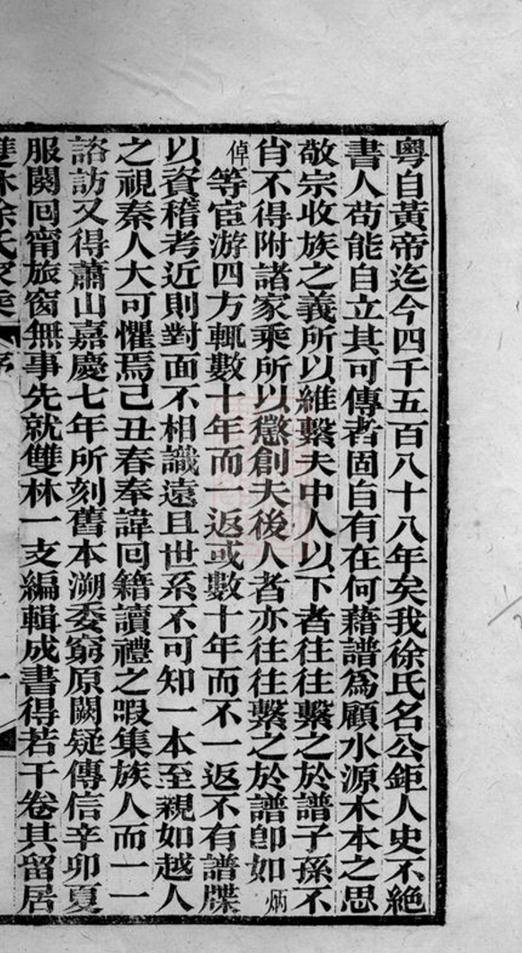 粵自黃帝迄今四千五百八十八年矣我徐氏名公鉅人史不絕
書人苟能自立其可傳者固自有在何藉譜爲顧水源木本之思
敬宗收族之義所以維繫夫中人以下者往往繫之於譜子孫不
肖不得附諸家乘所以懲創夫後人者亦往往繫之於譜卽如炳
倬等宦游四方輒數十年而一返或數十年而不一返不有譜牒
以資稽考近則對面不相識遠且世系不可知一本至親如越人
之視秦人大可懼焉己丑春奉諱回籍讀禮之暇集族人而一一
諮訪又得蕭山嘉慶七年所刻舊本溯委窮原闕疑傳信辛卯夏
服闋回甯旅窗無事先就雙林一支編輯成書得若干卷其留居
雙林徐氏家乘 序 一